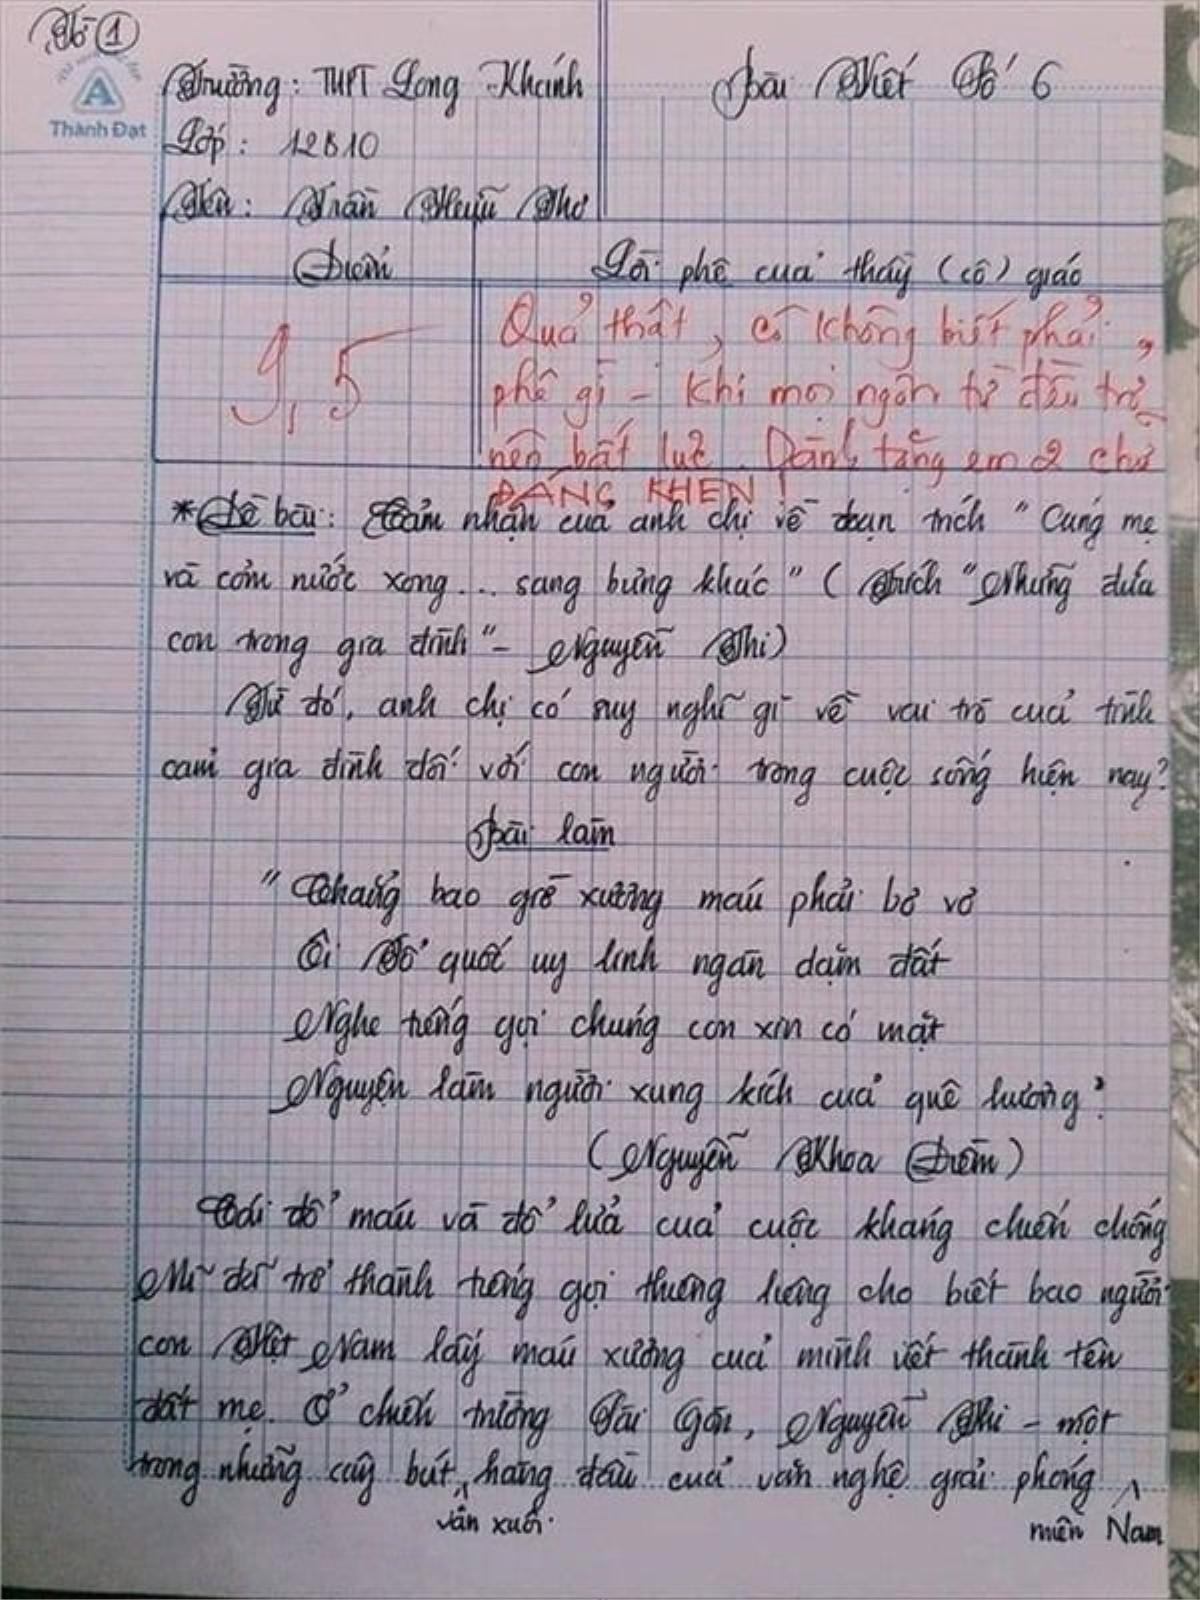 Tờ 1
Thành Đạt
Trường: THPT Long Khánh
Bài Viết Số 6
Lớp: 12B10
Tên: Trần Hữu Thơ
Điểm
Lời phê của thầy (cô) giáo
9,5
Quả thật, cô không biết phải
phê gì - Khi mọi ngôn từ đều trở
nên bất lực. Dành tặng em 2 chữ
ĐÁNG KHEN!
*Đề bài: Cảm nhận của anh chị về đoạn trích "Cúng mẹ
và cơm nước xong... sang bưng khác" (Trích "Những đứa
con trong gia đình" - Nguyễn Thi)
Từ đó, anh chị có suy nghĩ gì về vai trò của tình
cảm gia đình đối với con người trong cuộc sống hiện nay?
Bài làm
"Chẳng bao giờ xương máu phải bơ vơ
Ôi Tổ quốc uy linh ngàn dặm đất
Nghe tiếng gọi chúng con xin có mặt
Nguyện làm người xung kích của quê hương"
(Nguyễn Khoa Điềm)
Cái đổ máu và đổ lửa của cuộc kháng chiến chống
Mĩ đã trở thành tiếng gọi thiêng liêng cho biết bao người
con Việt Nam lấy máu xương của mình viết thành tên
đất mẹ. Ở chiến trường Sài Gòn, Nguyễn Thi - một
trong những cây bút hàng đầu của văn nghệ giải phóng
văn xuôi
miền Nam